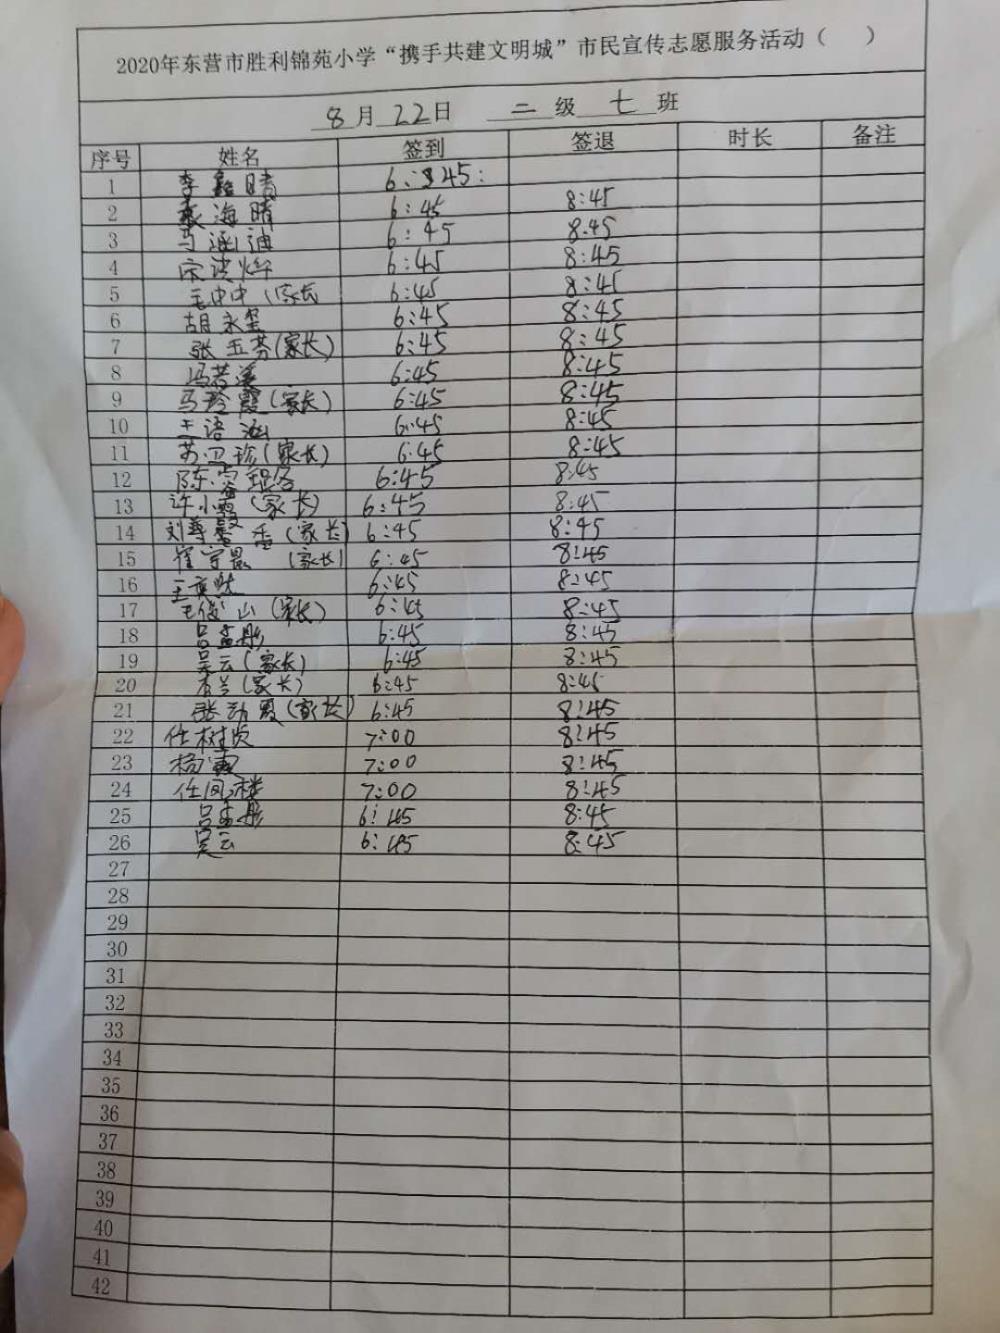 2020年东营市胜利锦苑小学“携手共建文明城”市民宣传志愿服务活动（ ）
8月22日 二级七班
序号 姓名 签到 签退 时长 备注
1 李鑫晴 6:45:
2 袁海晴 6:45 8:45
3 马涵迪 6:45 8:45
4 宋淇烨 6:45 8:45
5 毛中中（家长 6:45 8:45
6 胡永玺 6:45 8:45
7 张玉芬（家长） 6:45 8:45
8 冯若溪 6:45 8:45
9 马玲霞（家长） 6:45 8:45
10 王语涵 6:45 8:45
11 苏卫珍（家长） 6:45 8:45
12 陈 6:45 8:45
13 许小霞（家长） 6:45 8:45
14 刘 香（家长） 6:45 8:45
15 崔 （家长） 6:45 8:45
16 王 6:45 8:45
17 王俊山（家长） 6:45 8:45
18 吕孟彤 6:45 8:45
19 吴云（家长） 6:45 8:45
20 兰（家长） 6:45 8:45
21 张 霞（家长） 6:45 8:45
22 任树 7:00 8:45
23 杨霞 7:00 8:45
24 任凤楼 7:00 8:45
25 吕孟彤 6:45 8:45
26 吴云 6:45 8:45
27
28
29
30
31
32
33
34
35
36
37
38
39
40
41
42